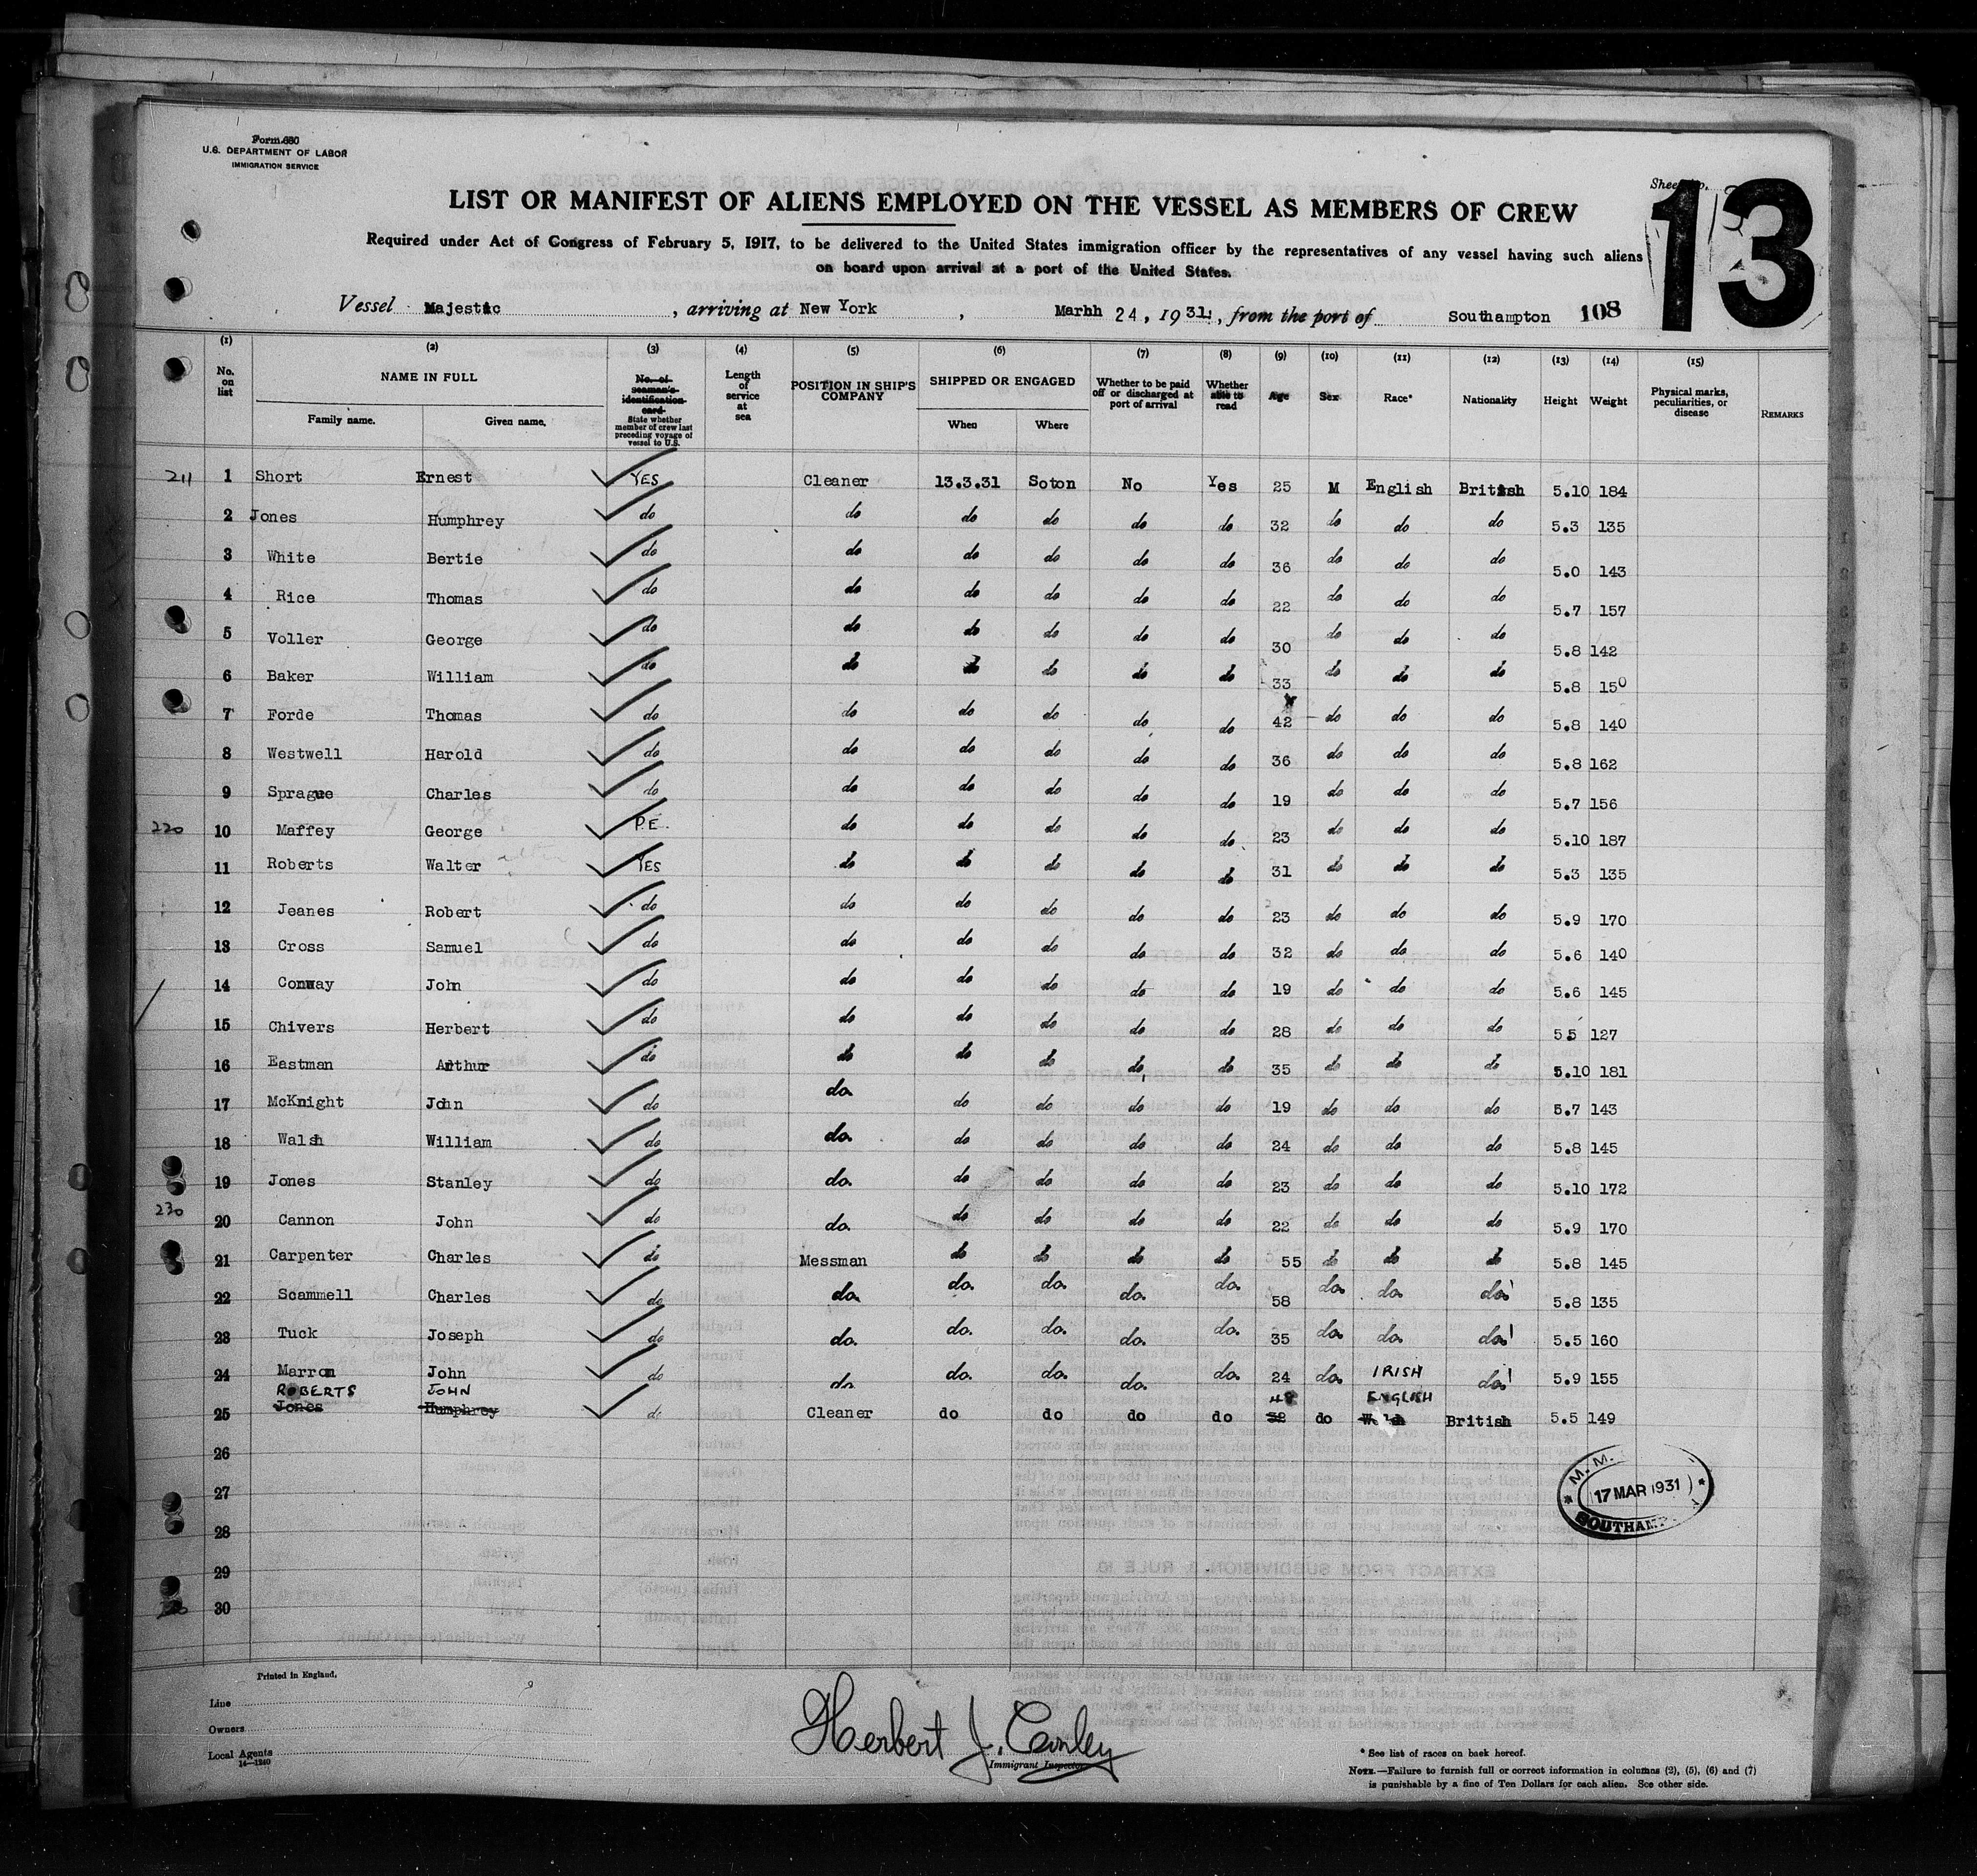 Form 680
U.S. DEPARTMENT OF LABOR
IMMIGRATION SERVICE
Sheet No. 13
13
LIST OR MANIFEST OF ALIENS EMPLOYED ON THE VESSEL AS MEMBERS OF CREW
Required under Act of Congress of February 5, 1917, to be delivered to the United States immigration officer by the representatives of any vessel having such aliens
on board upon arrival at a port of the United States.
Vessel Majestic, arriving at New York, Marhh 24, 1931, from the port of Southampton 108
(1) (2) (3) (4) (5) (6) (7) (8) (9) (10) (11) (12) (13) (14) (15)
No. on list NAME IN FULL Family name. Given name. No. of seaman's identification card State whether member of crew last preceding voyage of vessel to U.S. Length of service at sea POSITION IN SHIP'S COMPANY SHIPPED OR ENGAGED When Where Whether to be paid off or discharged at port of arrival Whether able to read Age Sex Race* Nationality Height Weight Physical marks, peculiarities, or disease REMARKS
211 1 Short Ernest YES Cleaner 13.3.31 Soton No Yes 25 M English British 5.10 184
2 Jones Humphrey do do do do do do 32 do do do 5.3 135
3 White Bertie do do do do do do 36 do do do 5.0 143
4 Rice Thomas do do do do do do 22 do do do 5.7 157
5 Voller George do do do do do do 30 do do do 5.8 142
6 Baker William do do do do do do 33 do do do 5.8 150
7 Forde Thomas do do do do do do 42 do do do 5.8 140
8 Westwell Harold do do do do do do 36 do do do 5.8 162
9 Sprague Charles do do do do do do 19 do do do 5.7 156
220 10 Maffey George P.E. do do do do do 23 do do do 5.10 187
11 Roberts Walter YES do do do do do 31 do do do 5.3 135
12 Jeanes Robert do do do do do do 23 do do do 5.9 170
13 Cross Samuel do do do do do do 32 do do do 5.6 140
14 Conway John do do do do do do 19 do do do 5.6 145
15 Chivers Herbert do do do do do do 28 do do do 5 5 127
16 Eastman Arthur do do do do do do 35 do do do 5.10 181
17 McKnight John do do. do do do do 19 do do do 5.7 143
18 Walsh William do do. do do do do 24 do do do 5.8 145
19 Jones Stanley do do. do do do do 23 do do do 5.10 172
230 20 Cannon John do do. do do do do 22 do do do 5.9 170
21 Carpenter Charles do Messman do do do do 55 do do do 5.8 145
22 Scammell Charles do do. do. do. do. do. 58 do. do. do. 5.8 135
23 Tuck Joseph do do. do. do. do. do. 35 do. do. do. 5.5 160
24 Marron John do do. do. do. do. do. 24 do. IRISH do. 5.9 155
ROBERTS JOHN 48 ENGLISH
25 Jones Humphrey do Cleaner do do do do 32 do Welsh British 5.5 149
26
27
28
29
30
M.M.
17 MAR 1931
SOUTHAMP
Printed in England.
Line
Owners
Local Agents
14—1240
Herbert J. Conley
Immigrant Inspector
* See list of races on back hereof.
NOTE.—Failure to furnish full or correct information in columns (2), (5), (6) and (7)
is punishable by a fine of Ten Dollars for each alien. See other side.